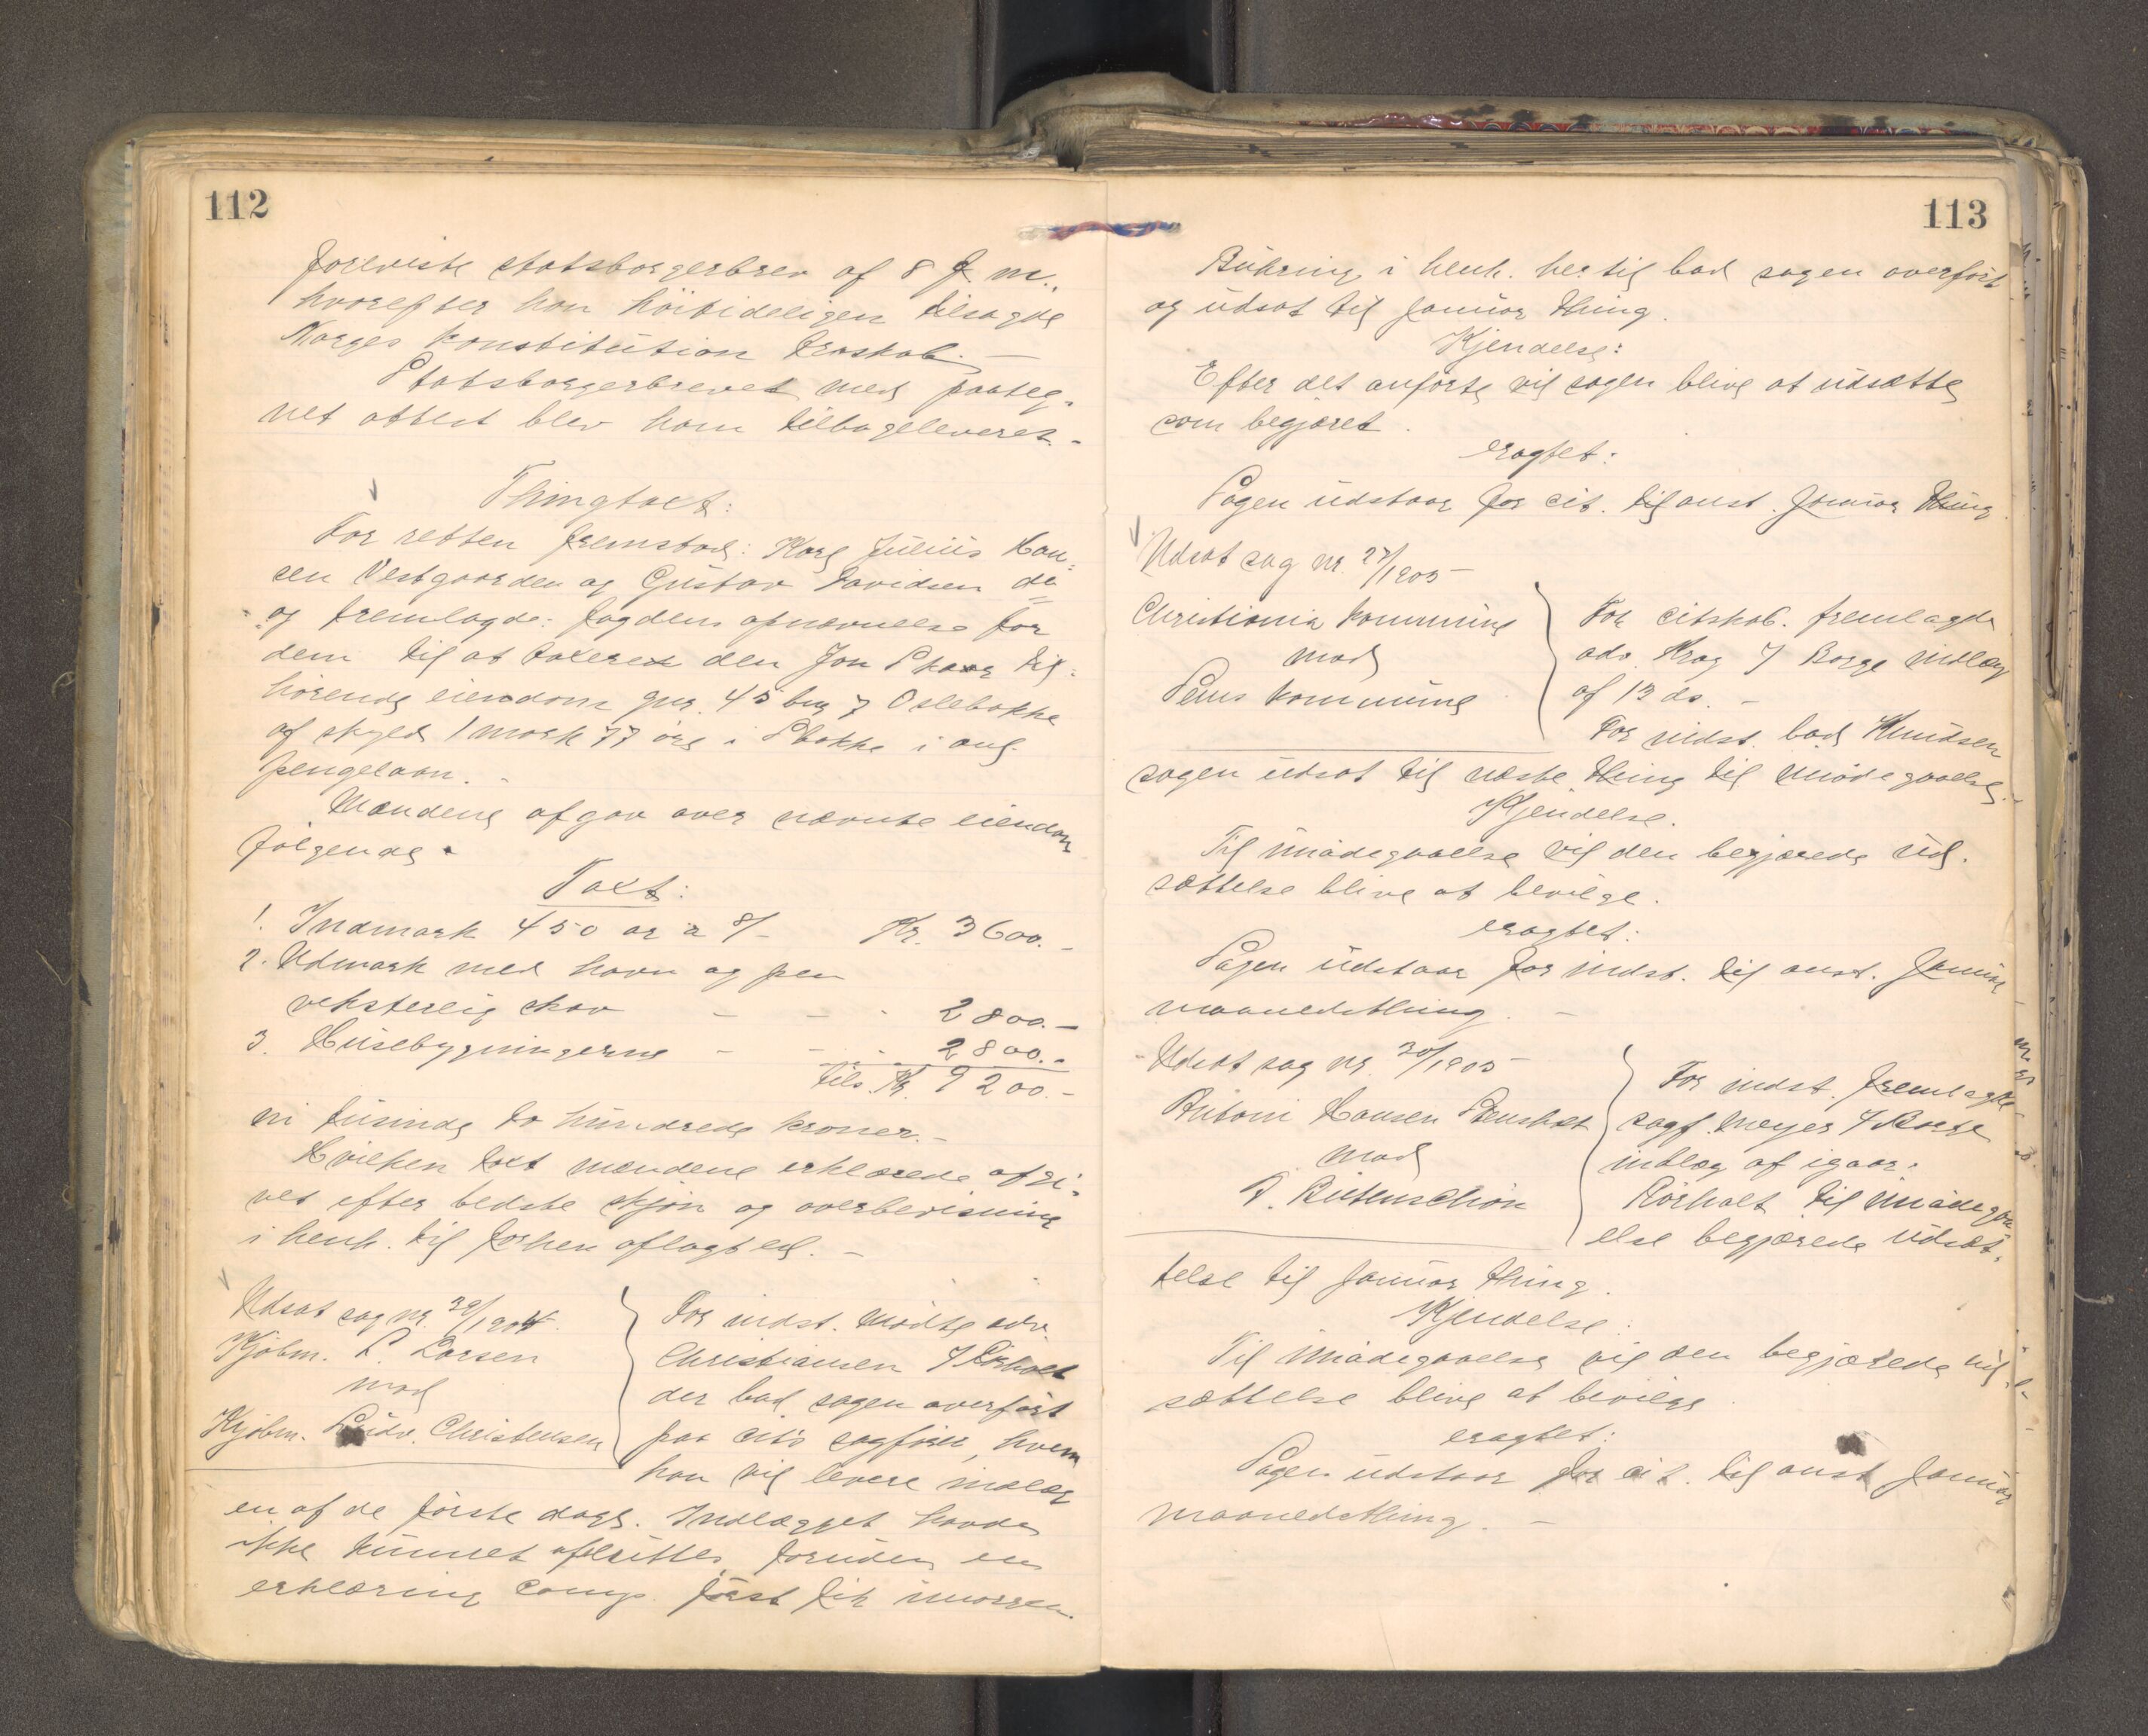 112
foreviste statsborgerbrev af 8 f. m.,
hvorefter han höitideligen tilsagde
Norges konstitution troskab. —
Statsborgerbrevet med paateg-
net attest blev ham tilbageleveret. -
Thingtaxt:
For retten fremstod: Karl Julius Han-
sen Vestgaarden og Gustav Davidsen do
og fremlagde: fogdens opnævnelse for
dem til at taxere den Jon Skaar til-
hörende eiendom gnr. 45 bnr 7 Oslebakke
af skyld 1 mark 77 öre i Stokke i anl.
pengelaan. -
Mændene afgav over nævnte eiendom
fölgende
Taxt:
1. Indmark 450 ar à 8/- Kr. 3600. -
2. Udmark med havn og pen
veksterlig skov - - - 2800. -
3. Husebygningerne - - - 2800. -
tils. Kr. 9200. -
ni tusinde to hundrede kroner. -
Hvilken taxt mændene erklærede afgi-
vet efter bedste skjön og overbevisning
i henh. til forhen aflagt ed. -
Udsat sag nr. 29/1904
Kjöbm. L. Larsen
mod
Kjöbm. Ludv. Christensen
For indst. mödte adv.
Christiansen f/
der bad sagen overfört
paa cit's sagförer, hvem
han vil levere indlæg
en af de förste dage. Indlægget havde
ikke kunnet afsluttes, foruden en
erklæring comp. först fik imorges.
113
Bühring i henh. hertil bad sagen overfört
og udsat til januar thing.
Kjendelse:
Efter det anförte vil sagen blive at udsætte
som begjæret.
eragtet:
Sagen udstaar for cit. til anst. Januar thing.
Udsat sag nr. 27/1905 -
Christiania kommune
mod
Sems kommune
For citskab. fremlagde
adv. Krag f/ Borge indlæg
af 13 ds. -
For indst. bad Knudsen
sagen udsat til næste thing til imödegaaelse.
Kjendelse.
Til imödegaaelse vil den begjærede ud-
sættelse blive at bevilge.
eragtet:
Sagen udstaar for indst. til anst. Januar
maanedsthing. -
Udsat sag nr. 30/1905 -
Antoni Hansen
mod
For indst. fremlagde
sagf. Meyer f/ Borge
indlæg af igaar.
Rörholt til imödegaa-
else begjærede udsæt-
telse til januar thing.
Kjendelse:
Til imödegaaelse vil den begjærede ud-
sættelse blive at bevilge
eragtet:
Sagen udstaar for cit. til anst Januar
maanedsthing. -